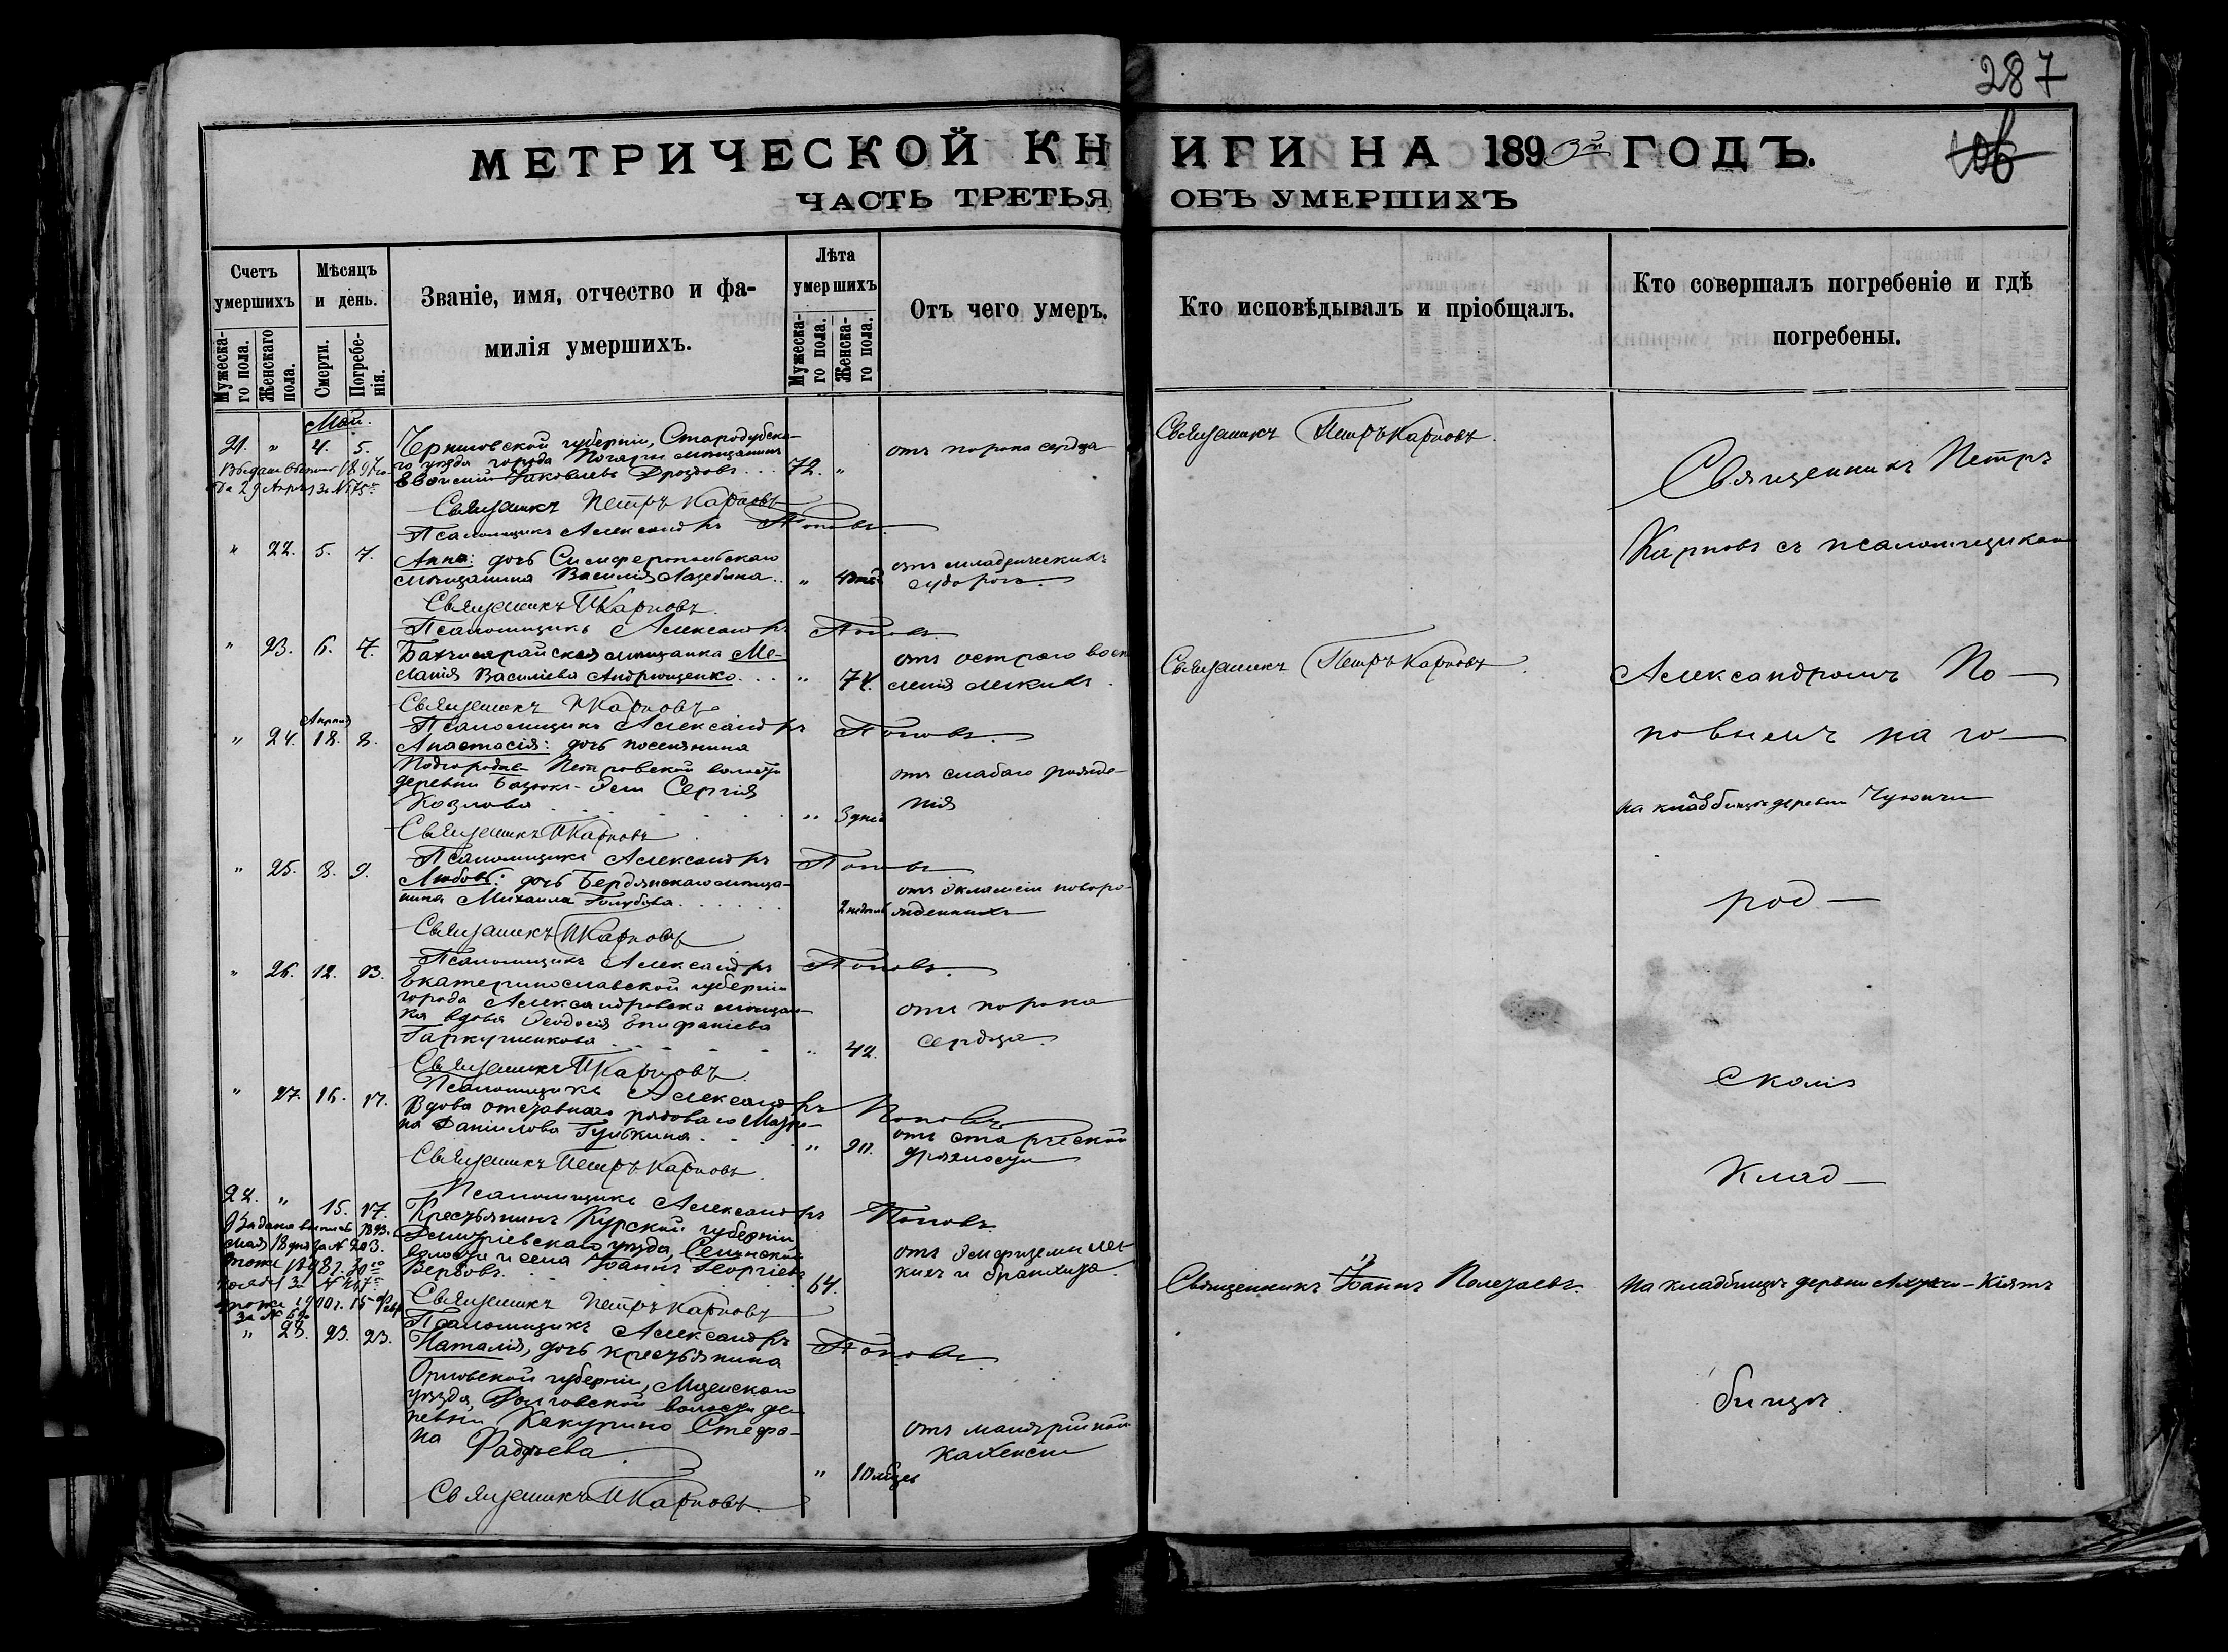 287
МЕТРИЧЕСКОЙ КНИГИ НА 1893й ГОДЪ.
106
ЧАСТЬ ТРЕТЬЯ ОБЪ УМЕРШИХЪ
Счетъ умершихъ
Мужеска-го пола.
Женскаго пола.
Мѣсяцъ и день.
Смерти.
Погребе-нія.
Званіе, имя, отчество и фа-
милія умершихъ.
Лѣта умершихъ
Мужеска-го пола.
Женска-го пола.
Отъ чего умеръ.
Кто исповѣдывалъ и пріобщалъ.
Кто совершалъ погребеніе и гдѣ
погребены.
Май.
21. " 4. 5. Черниговской губерніи, Стародубска- отъ порока сердца Священникъ Петръ Карповъ
го уѣзда города Погары мѣщанинъ
Яковлевъ Дроздовъ . . . 72. "
Священникъ Петръ Карповъ
Псаломщикъ Александръ Поповъ
" 22. 5. 7. Анна: дочь Симферопольскаго отъ младенческихъ
мѣщанина Василія Лазебника . . " судорогъ.
Священникъ П Карповъ.
Псаломщикъ Александръ Поповъ.
" 23. 6. 7. Бахчисарайская мѣщанка Ме- отъ остраго восп Священникъ Петръ Карповъ.
ланія Василіева Андрющенко . . . " 74. ленія легкихъ.
Священникъ П Карповъ
Псаломщикъ Александръ Поповъ.
Апрѣля
" 24. 18. 8. Анастасія: дочь поселянина
Подгородне-Петровской волости отъ слабаго рожде-
деревни Сергія нія
Козлова . . . " 3 дней
Священникъ П Карповъ
Псаломщикъ Александръ Поповъ
" 25. 8. 9. Любовь: дочь Бердянскаго мѣща- отъ эклампсіи новоро-
нина Михаила Голубова . . . 2 недѣль жденныхъ
Священникъ П Карповъ
Псаломщикъ Александръ Поповъ.
" 26. 12. 13. Екатеринославской губерніи
города Александровска мѣщан- отъ порока
ка вдова Ѳеодосія Епифаніева
Гаркушенкова . . . " 42. сердца.
Священникъ П Карповъ.
Псаломщикъ Александръ Поповъ
" 27. 16. 17. Вдова отставнаго рядоваго Матре-
на Даніилова Гулькина . . . " 90. отъ старческой
дряхлости
Священникъ Петръ Карповъ
Псаломщикъ Александръ Поповъ.
22. " 15. 17. Крестьянинъ Курской губерніи
Дмитріевскаго уѣзда, отъ эмфиземы лег-
волости и села Іоаннъ Георгіевъ кихъ и бронхита.
Вервовъ. . . . 64. Священникъ Іоаннъ Полезаевъ. На кладбищѣ деревни Кіятъ
Священникъ Петръ Карповъ
Псаломщикъ Александръ Поповъ
" 28. 23. 23. Наталія, дочь крестьянина
Орловской губерніи, Мценскаго
уѣзда, Волговской волости де-
ревни Какурино Стефа- отъ
на Фадѣева . . . " 10 мѣцев кахексіи
Священникъ П Карповъ.
Священникъ Петръ
Карповъ съ псаломщикомъ
Александромъ По-
повымъ на го-
на кладбищѣ деревни
род-
скомъ
клад-
бищѣ.